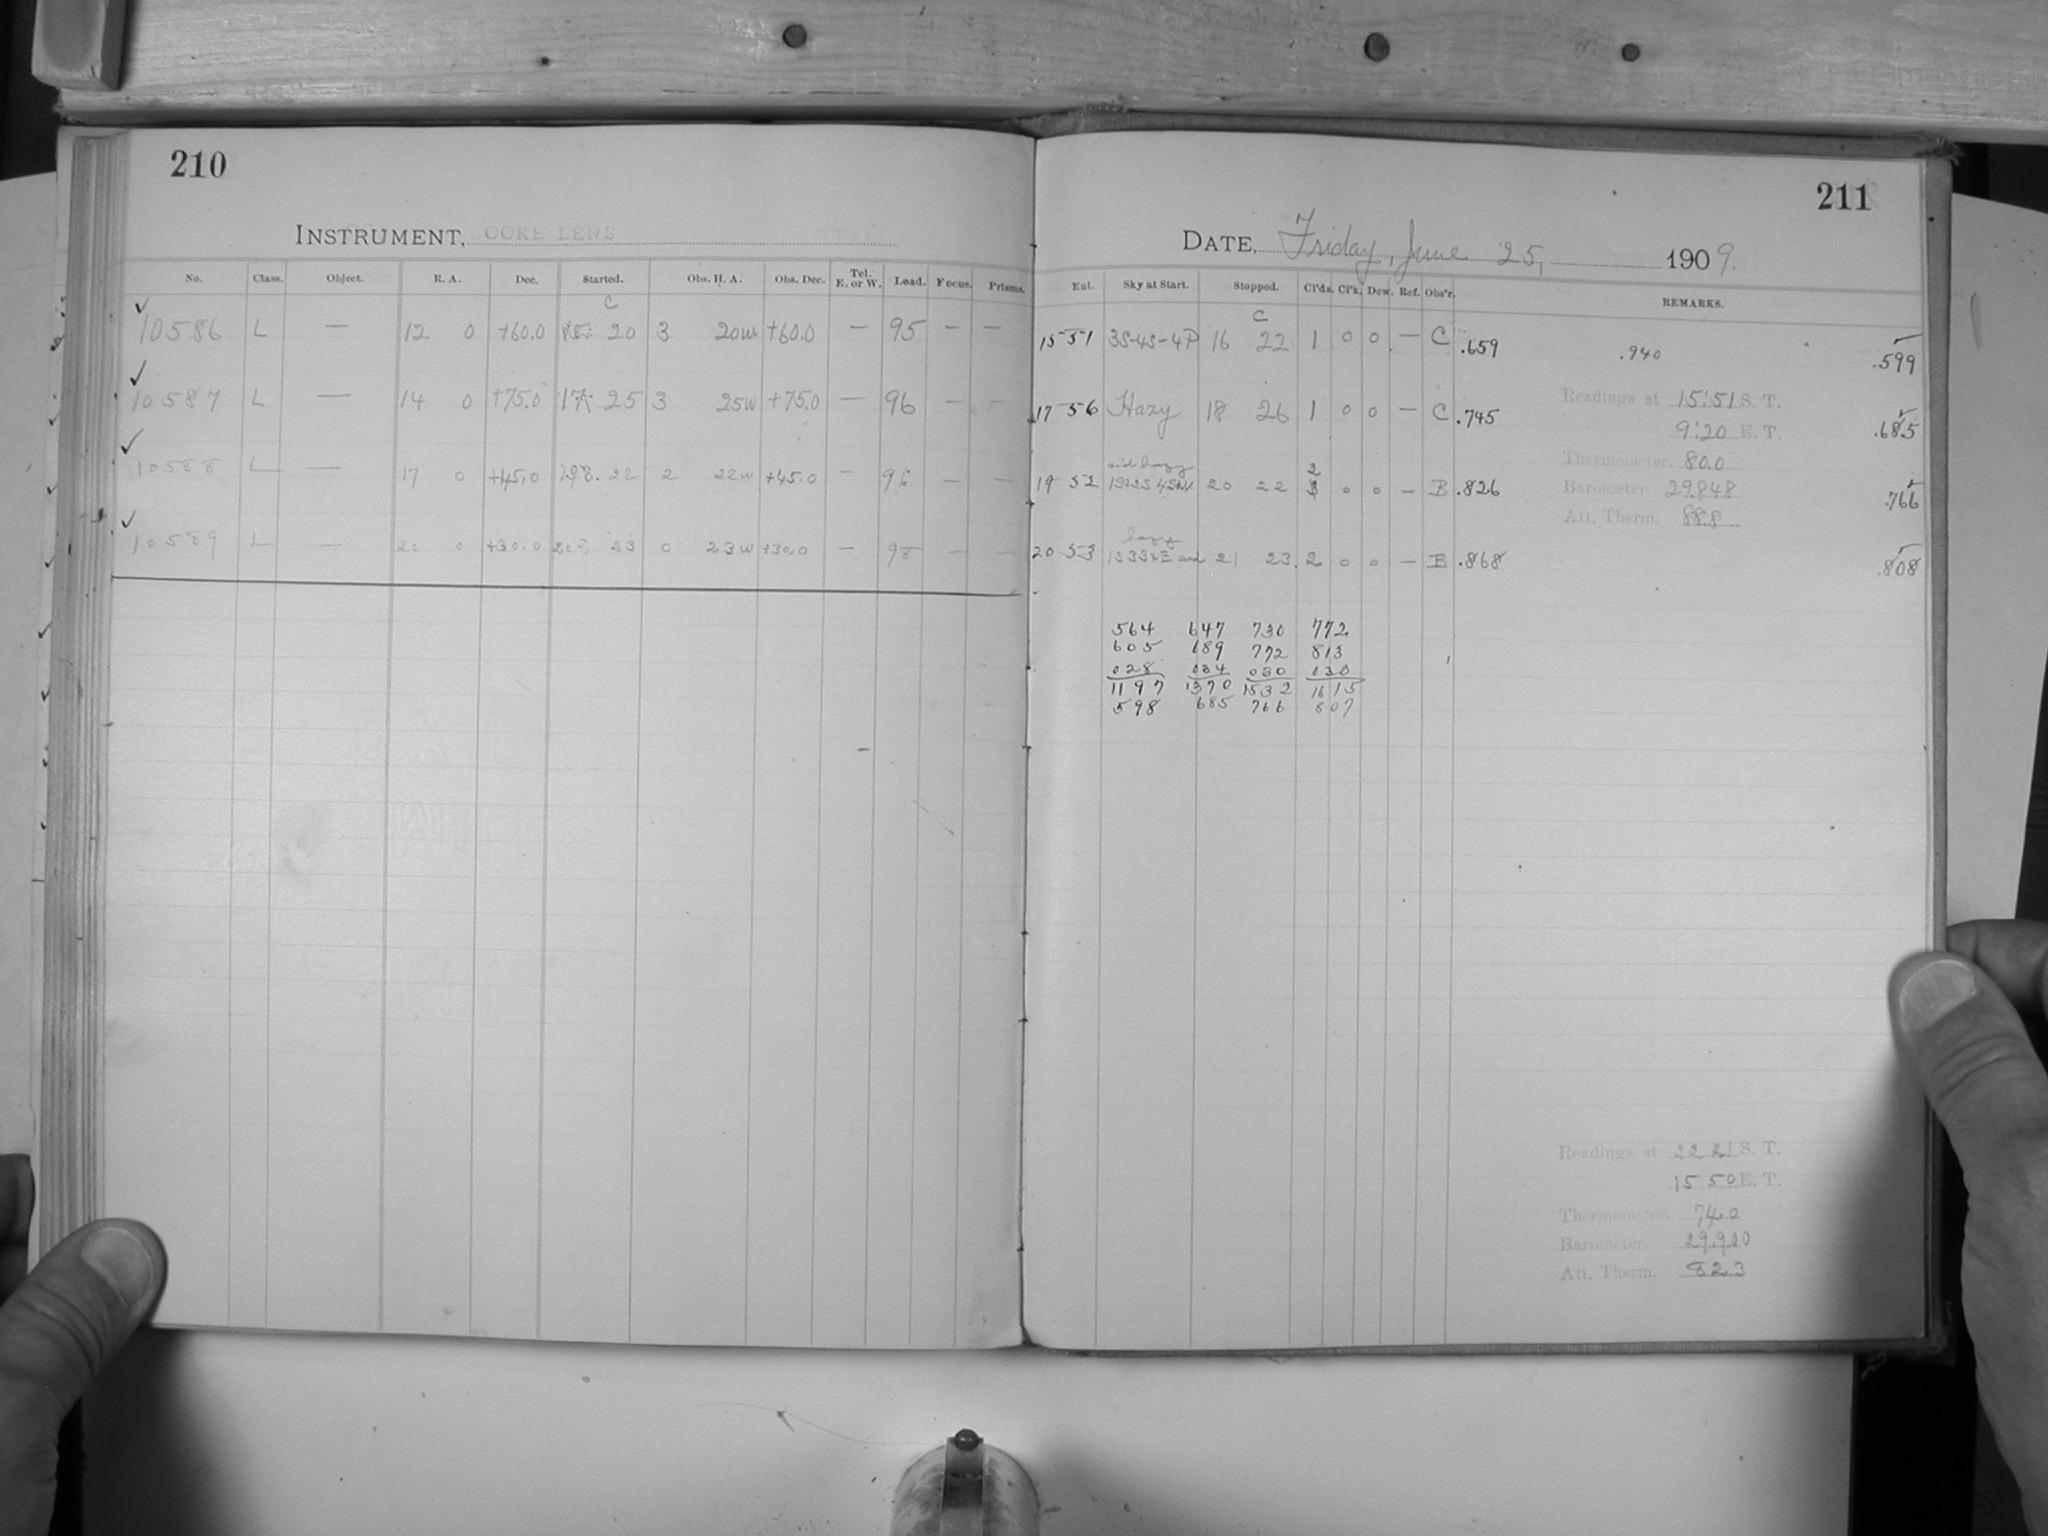 210
INSTRUMENT, COOKE LENS
No. Class. Object. R. A. Dec. Started. Obs. H. A. Obs. Dec. Tel. E. or W. Load. Focus. Prisms.
C
10586 L — 12 0 +60.0 20 3 20w +60.0 — 95 — —
10587 L — 14 0 +75.0 17 25 3 25w +75.0 — 96 — —
10588 L — 17 0 +45.0 22 2 22w +45.0 — 96 — —
10589 L — 20 0 +30.0 20 23 0 23w +30.0 — 98 — —
211
DATE, Friday, June 25, 1909.
Ent. Sky at Start. Stopped. Cl'ds. Cl'k. Dew. Ref. Obs'r. REMARKS.
C
15 51 3S-4S-4P 16 22 1 0 0 — C .659 .940 .599
17 56 Hazy 18 26 1 0 0 — C .745 .685
19 52 20 22 2 0 0 — B .826 .766
hazy
20 53 and 21 23. 2 0 0 — B .868 .808
Readings at 15:51 S. T.
9:20 E. T.
Thermometer. 80.0
Barometer. 29.848
Att. Therm. 88.8
564 647 730 772
605 689 772 813
028 034 030 030
1197 1370 1532 1615
598 685 766 807
Readings at 22 21 S. T.
15 50 E. T.
Thermometer. 74.0
Barometer. 29.900
Att. Therm. 82.3